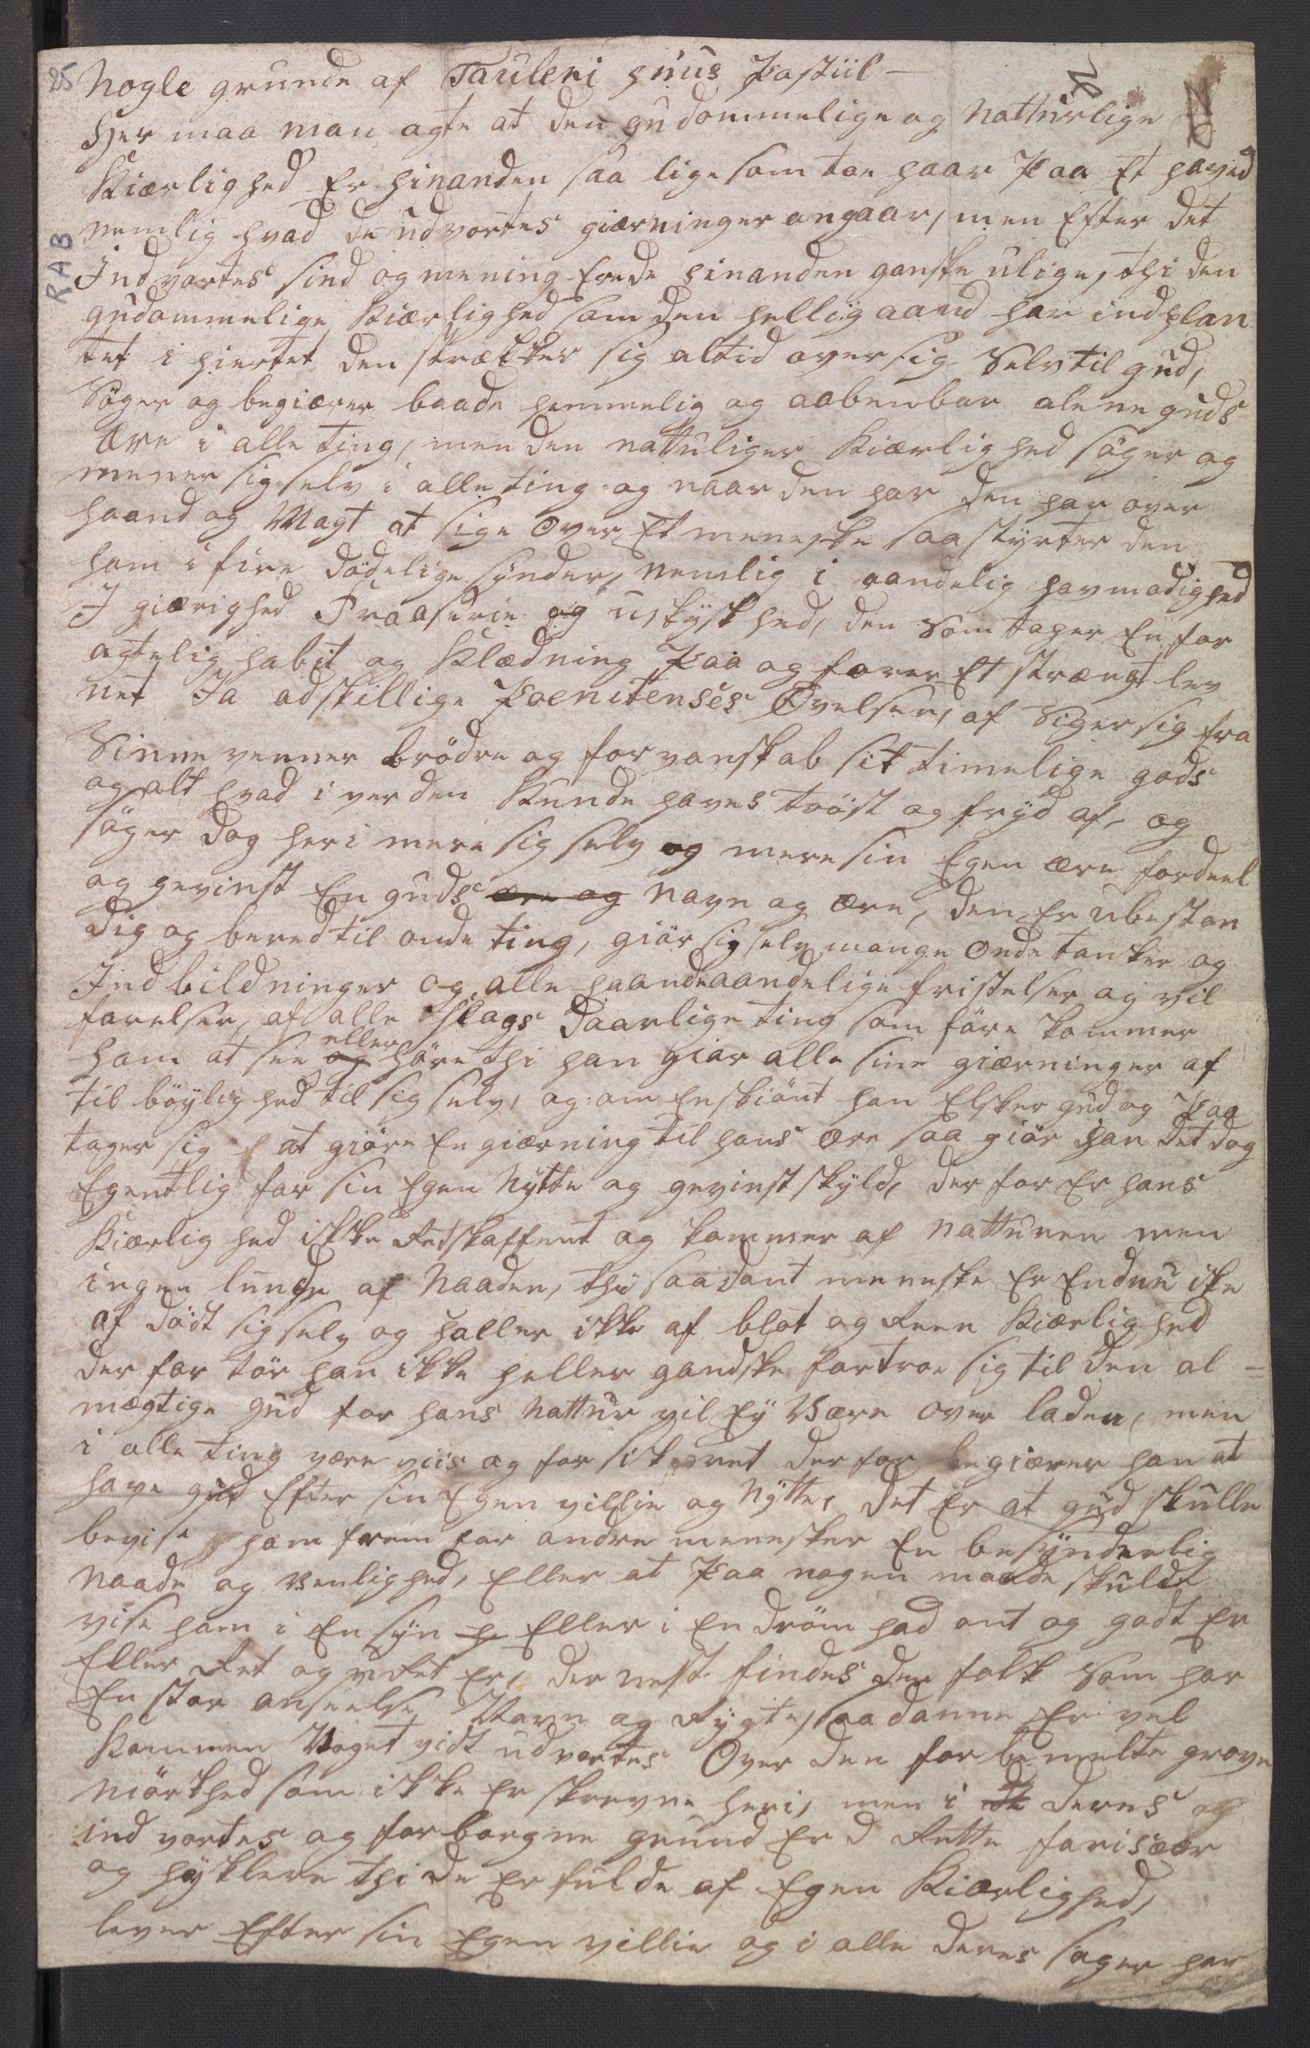 25 Nogle grunde af Tauleri huus Postiil –
Her maa man agte at den gudommelige og natturlige
Kiærlighed Er hinanden saa lige som toe haar Paa Et hoved
nemlig hvad de udvortes giærninger angaar, men Efter det
RAB
Indvortes sind og mening Erede hinanden ganske ulige, thi den
gudommelige Kiærlighed som den hellig aand har indplan
tet i hiertet den strækker sig altid over sig Selv til gud,
Söger og begiærer baade hemmelig og aabenbar alene guds
Ære i alle ting, men den nattuliger Kiærlighed söger og
mener sig selv i alle ting og naar den har den har over
haand og Magt at sige Over Et menneske saa styrter den
ham i fire dödelige synder, nemlig i aandelig hovmodighed
I giærighed Fraaserie og ukyskhed, den som tager En for
agtelig habit og Klædning Paa og fører Et strængt lev
net Ja adskillige Poenitenses Övelser, af Siger sig fra
Sinne venner brödre og forvanskab sit timelige gods
og alt hvad i verden Kunde haves tröst og fryd af, og
söger dog heri mere sig selv og mere sin Egen ære fordeel
og gevinst En guds ære og navn og ære, den Er ubestan
dig og bered til onde ting, giör sig selv mange Onde tanker og
Indbildninger og alle haande aandelige fristelser og vil
farelser, af alle slags daarlige ting som före kommer
ham at see og eller höre thi han giör alle sine giærninger af
tilböylighed til sig selv, og om Enskiönt han Elsker gud og Paa
tager sig at giöre En giærning til hans ære saa giör han det dog
Egentlig for sin Egen Nytte og gevinst skyld, der for Er hans
Kiærlighed ikke Retskaffent og kommer af natturen men
ingen lunde af Naaden, thi saadant menneske Er Endnu ike
af dödt sig selv og holler ikke af blot og Reen Kiærlighed
der for tör han ikke heller gandske fortroe sig til den al=
mægtige gud for hans Nattur vil Ey Være over laden, men
i alle ting være viis og for sikeret der for begiærer han at
have gud Efter sin Egen villie og Nytte, det Er at gud skulle
bevise ham frem for andre mennesker En besynderlig
Naade og Venlighed, Eller at Paa nogen maade skulde
vise ham i En syn Eller i En dröm had ont og godt Er
Eller Ret og uRet Er, der nest findes der folk Som har
En stor anseelse Navn og Rygte, saadanne Er vel
Kommen Noget vidt udvortes Over den for bemelte grove
Mörkhed som ikke Er skrevne heri, men i de deres og
indvortes og forborgne grund Er d Rette farisæer
og hyklere thi de Er fulde af Egen Kiærlighed,
lever Efter sin Egen villie og i alle deres sager har